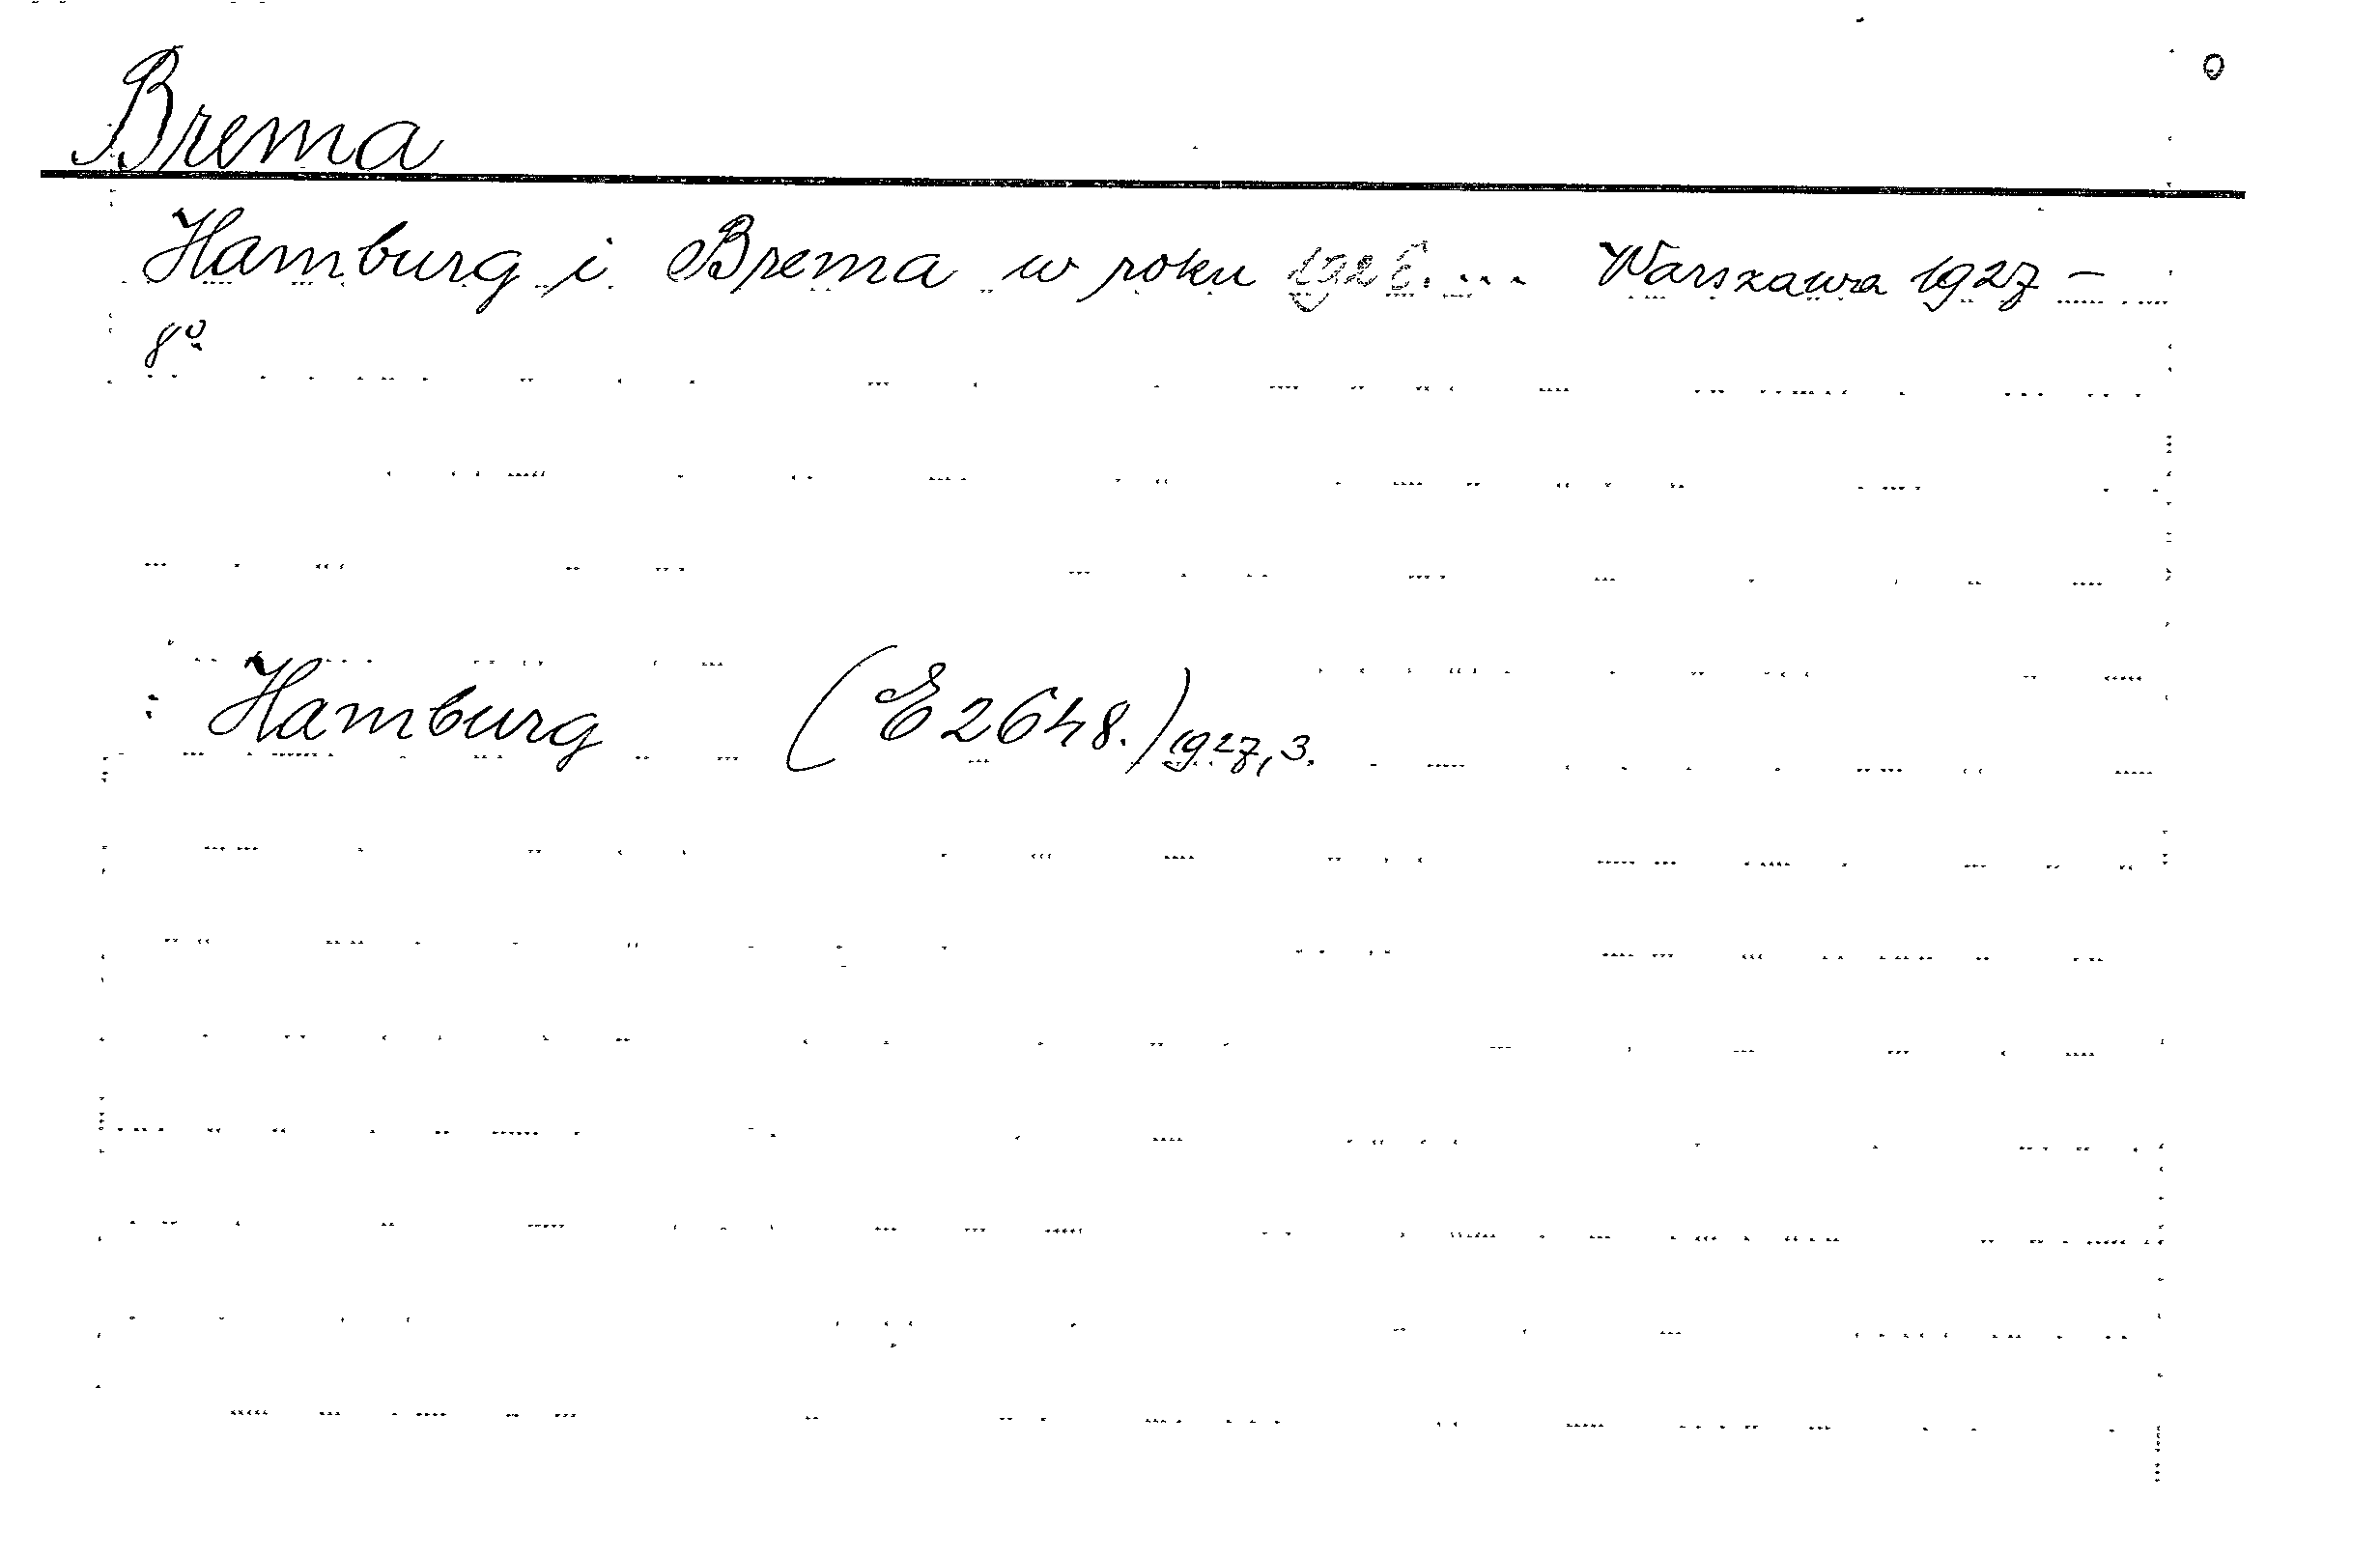 Brema
Hamburg i Brema w roku 1926. ... Warszawa 1927 –
8º
: Hamburg (E 2648.) 1927, 3.